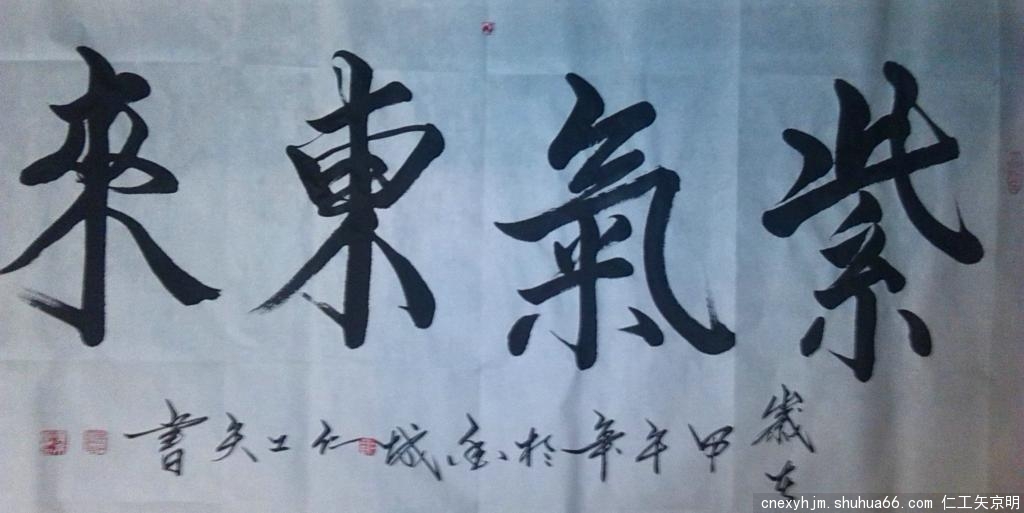 紫氣東來
歲在
甲午年於香城仁工矢書
cnexyhjm.shuhua66.com 仁工矢京明